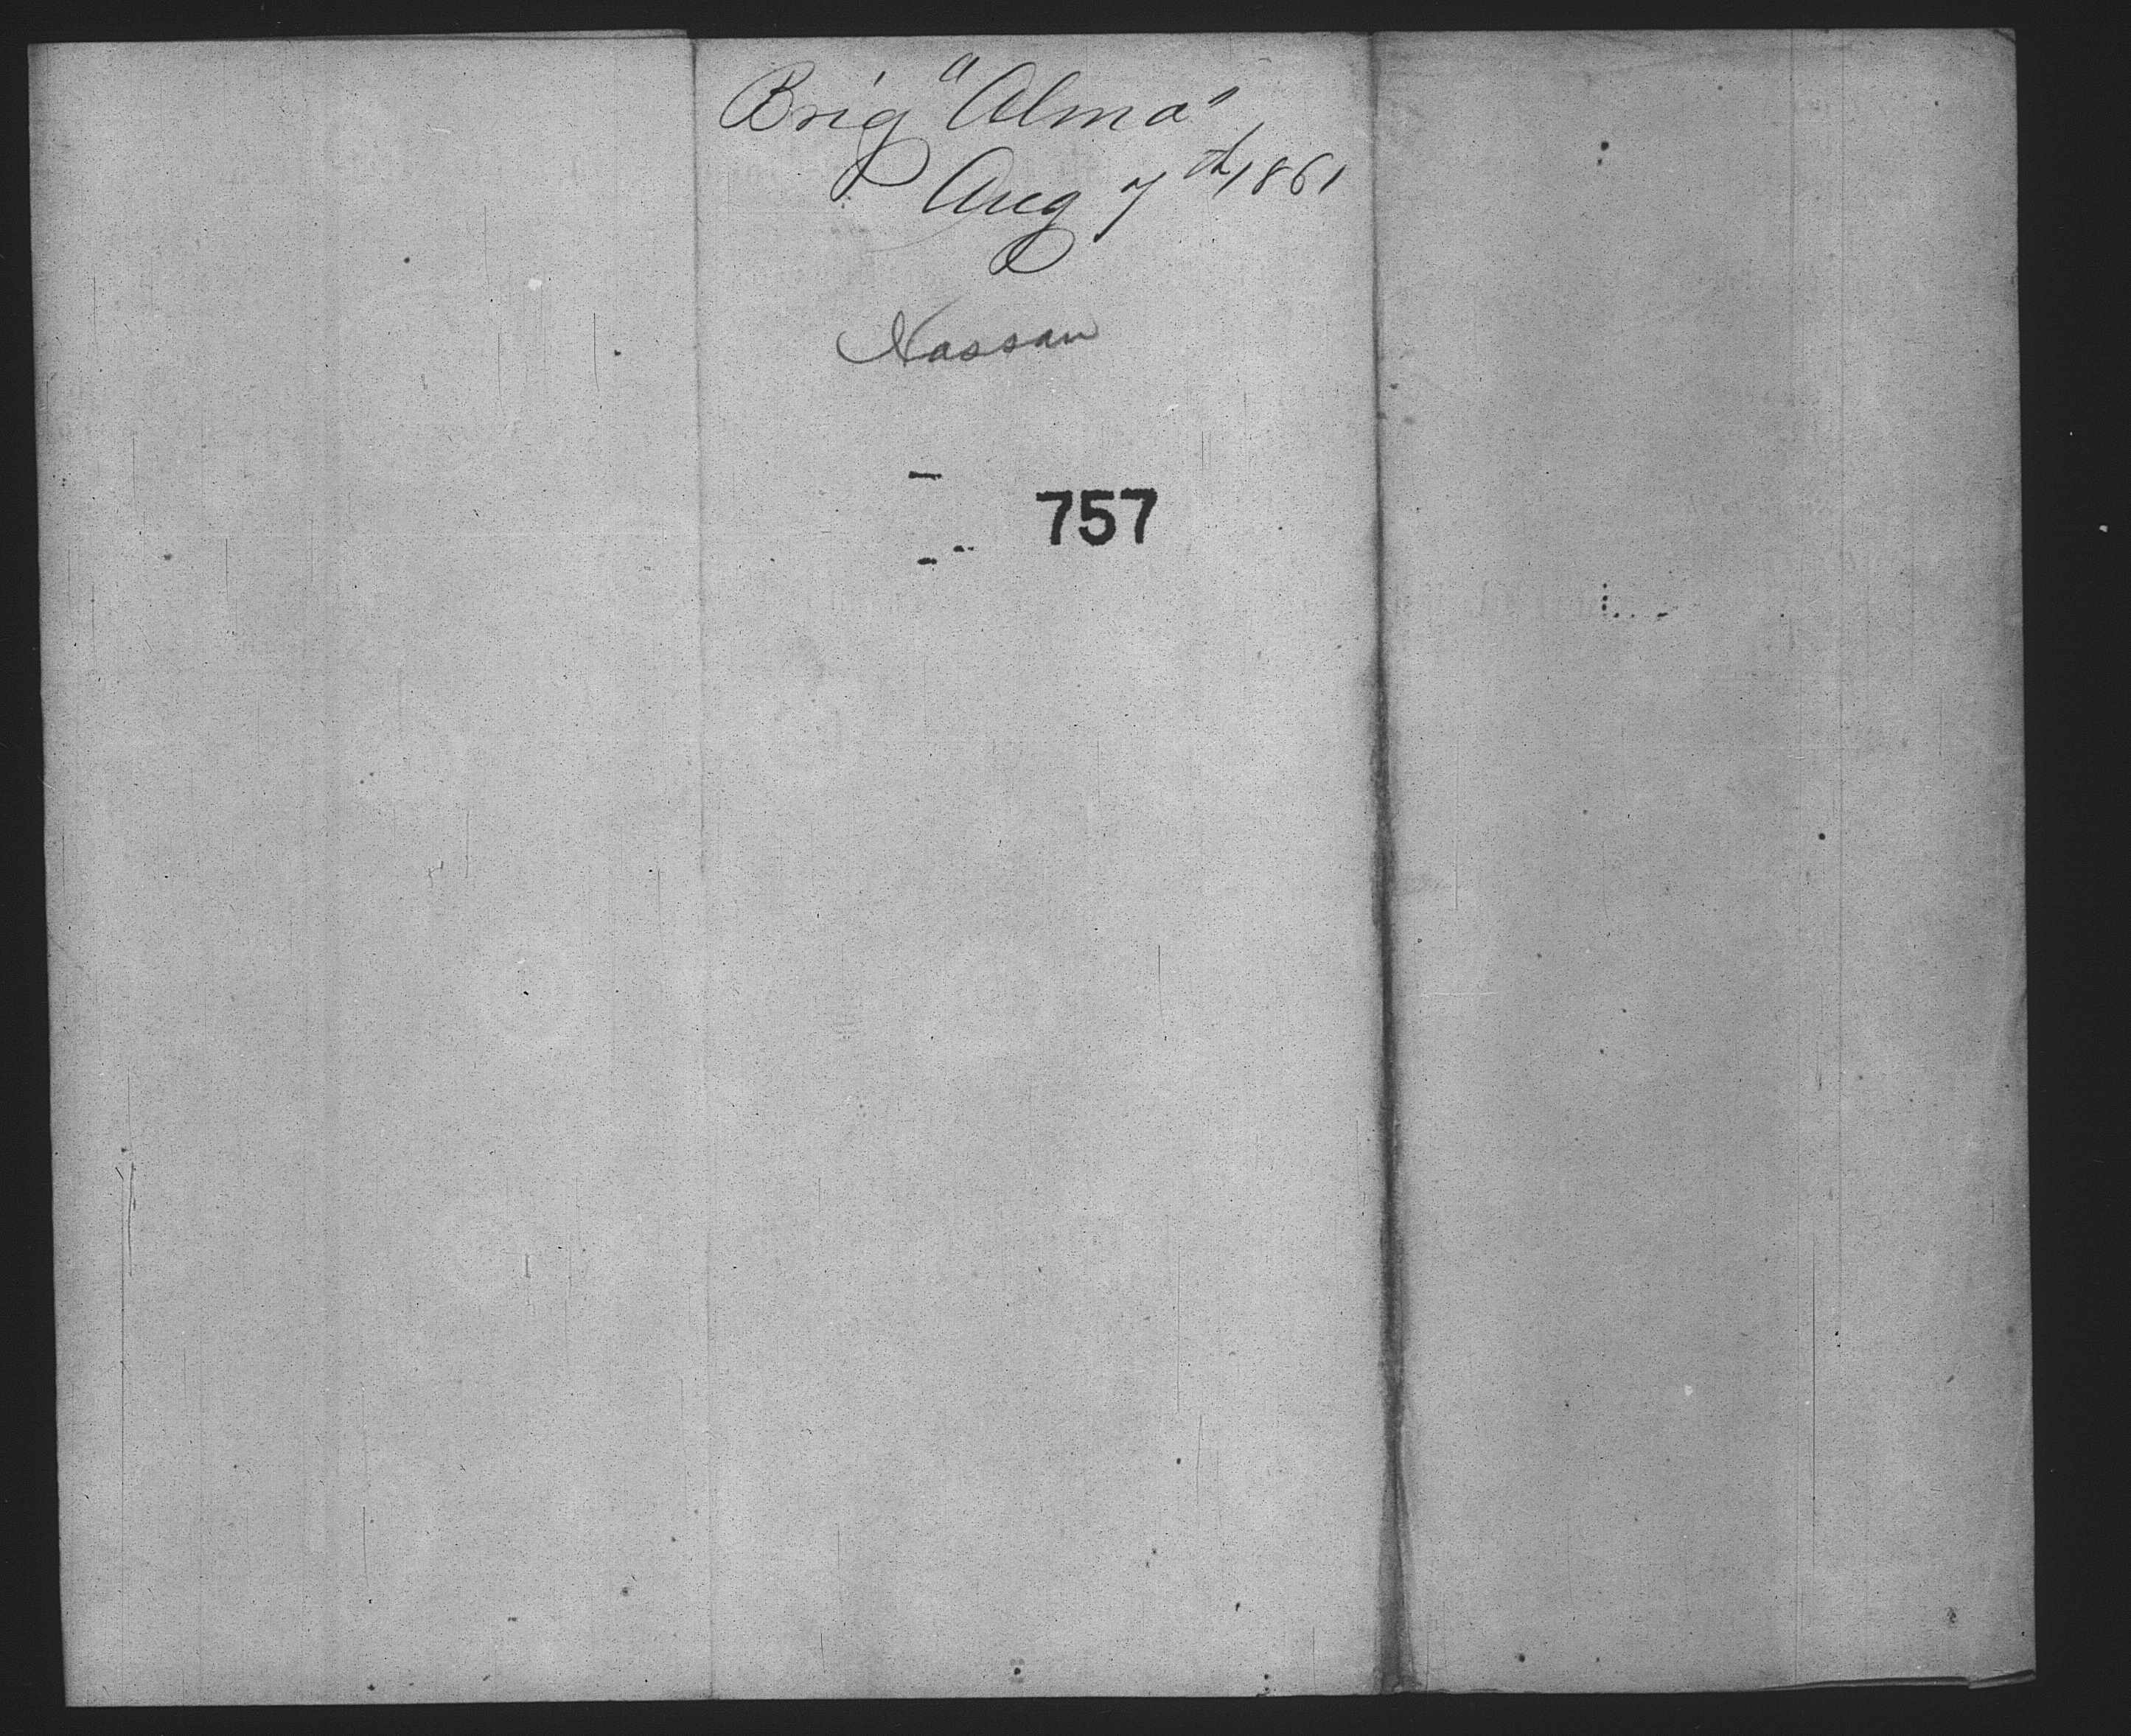 Brig "Alma"
Aug 7th 1861
Nassau
757